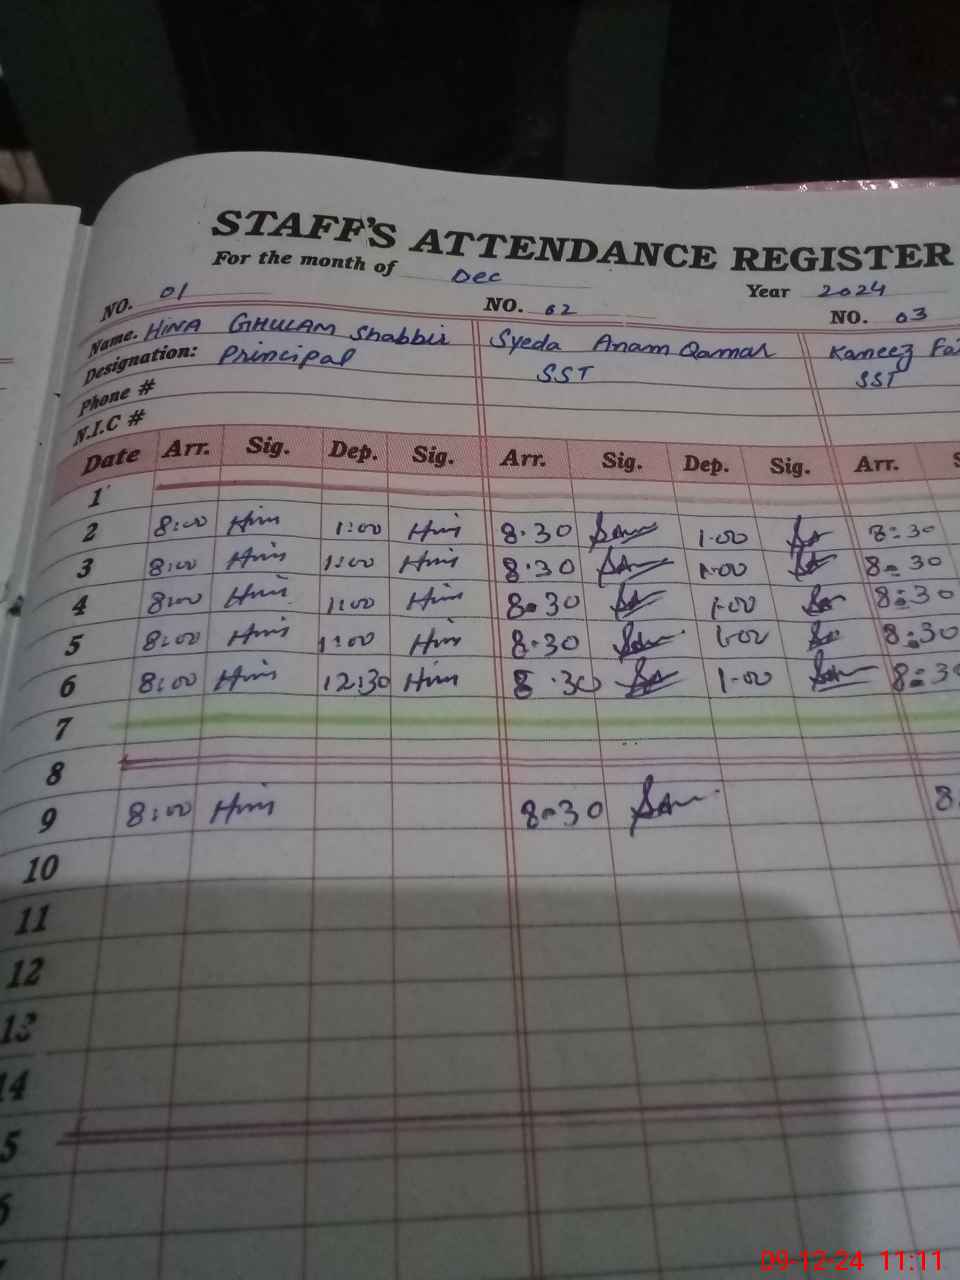 STAFF'S ATTENDANCE REGISTER
For the month of Dec Year 2024
NO. 01 NO. 02 NO. 03
Name. HINA GHULAM Shabbir Syeda Anam Qamar Kaneez
Designation: Principal SST SST
Phone #
N.I.C #
Date Arr. Sig. Dep. Sig. Arr. Sig. Dep. Sig. Arr. S
1
2 8:00 1:00 8.30 1.00 8:30
3 8:00 1:00 8.30 1.00 8:30
4 8:00 1:00 8.30 1.00 8:30
5 8:00 1:00 8.30 1.00 8:30
6 8:00 12:30 8.30 1.00 8:30
7
8
9 8:00 8.30 8
10
11
12
13
14
5
6
09-12-24 11:11